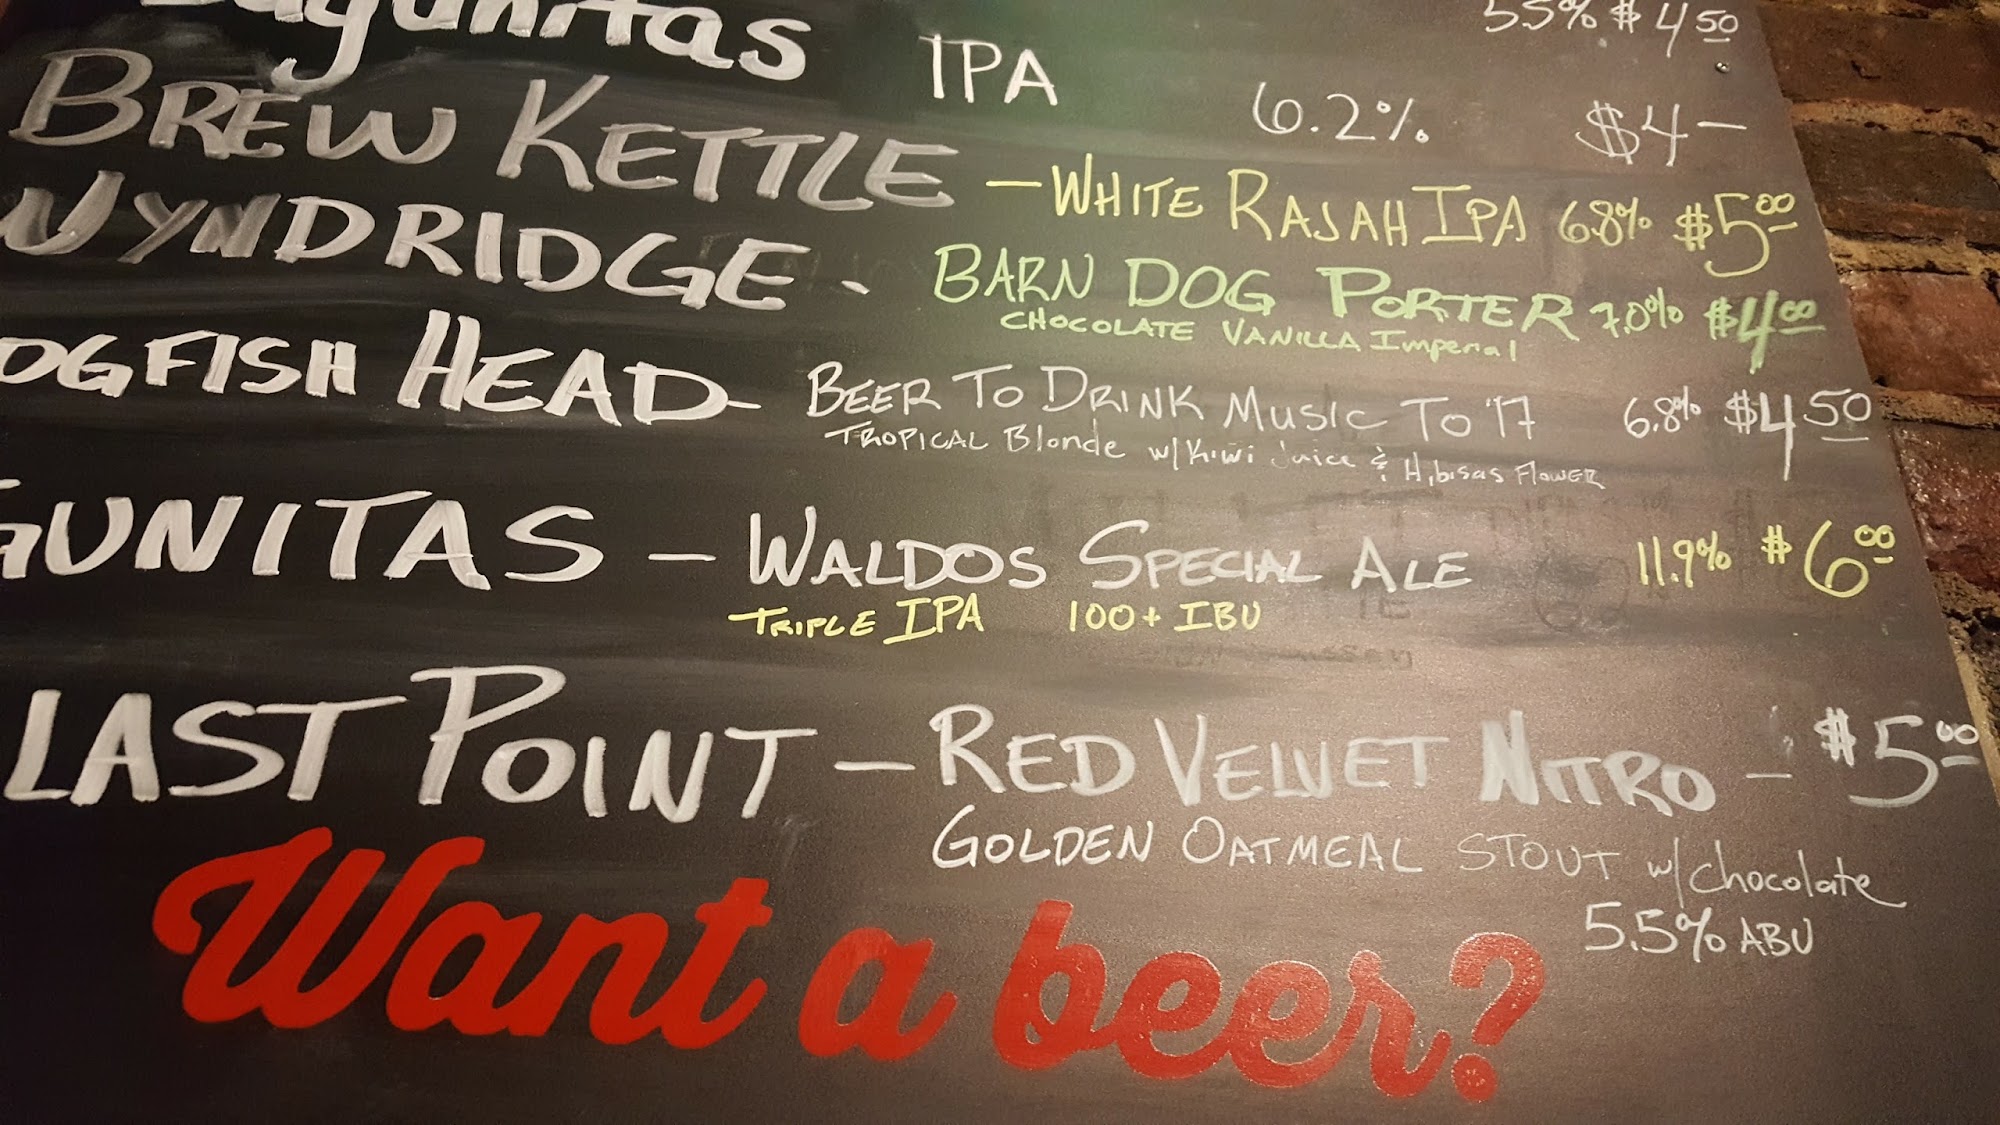 55% $4 50
Lagunitas IPA 6.2% $4-
BREW KETTLE - WHITE RAJAH IPA 6.8% $5 00
WYNDRIDGE - BARN DOG PORTER 7.0% $4 00
CHOCOLATE VANILLA Imperial
OGFISH HEAD - BEER TO DRINK MUSIC TO '17 6.8% $4 50
TROPICAL Blonde w/ Kiwi Juice & Hibisas FLOWER
GUNITAS - WALDOS SPECIAL ALE 11.9% $6 00
TRIPLE IPA 100+ IBU
LAST POINT - RED VELVET NITRO - $5 00
GOLDEN OATMEAL STOUT w/ chocolate
5.5% ABU
Want a beer?